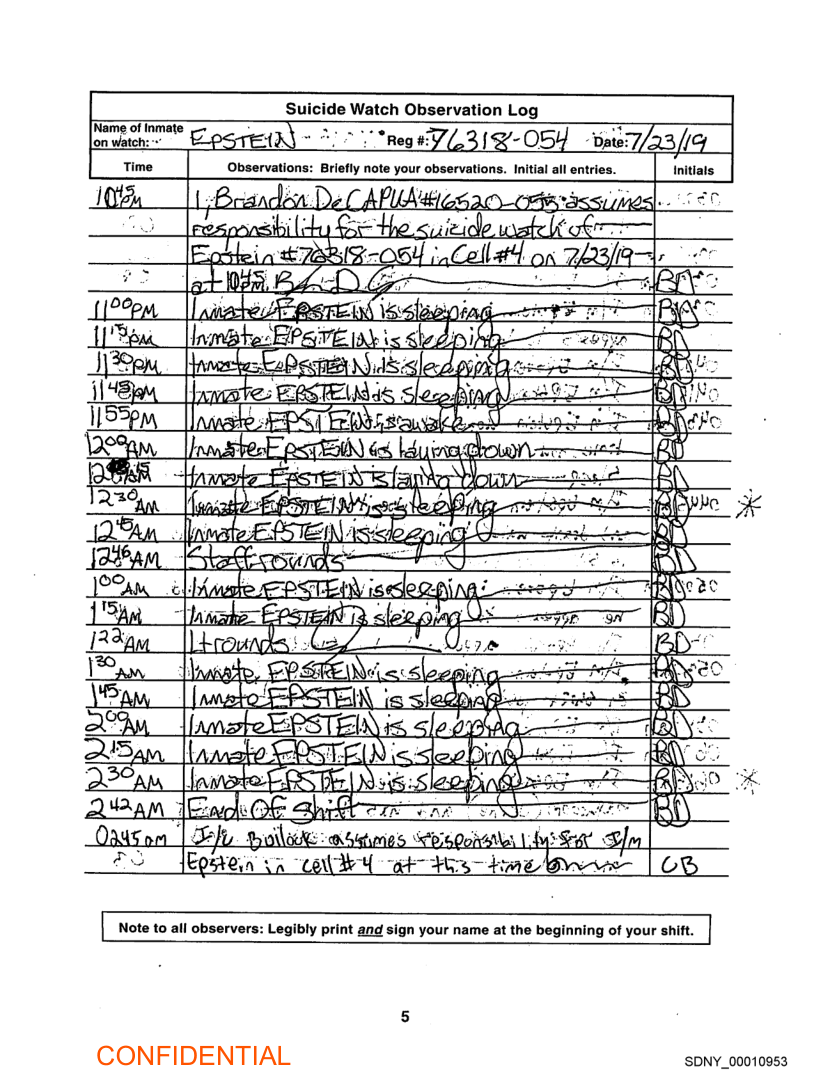 Suicide Watch Observation Log
Name of Inmate on watch: EPSTEIN Reg #: 76318-054 Date: 7/23/19
Time Observations: Briefly note your observations. Initial all entries. Initials
10:45 PM I, Brandon DeCAPUA #16520-055 assumes
responsibility for the suicide watch of
Epstein #76318-054 in Cell #4 on 7/23/19
at 1045 PM. BD
11:00 PM Inmate EPSTEIN is sleeping BD
11:15 PM Inmate EPSTEIN is sleeping BD
11:30 PM Inmate EPSTEIN is sleeping BD
11:45 PM Inmate EPSTEIN is sleeping BD
11:55 PM Inmate EPSTEIN is awake BD
12:00 AM Inmate EPSTEIN is laying down BD
12:15 AM Inmate EPSTEIN is laying down BD
12:30 AM Inmate EPSTEIN is sleeping BD *
12:45 AM Inmate EPSTEIN is sleeping BD
12:46 AM Staff rounds BD
1:00 AM Inmate EPSTEIN is sleeping BD
1:15 AM Inmate EPSTEIN is sleeping BD
1:22 AM Lt rounds BD
1:30 AM Inmate EPSTEIN is sleeping BD
1:45 AM Inmate EPSTEIN is sleeping BD
2:00 AM Inmate EPSTEIN is sleeping BD
2:15 AM Inmate EPSTEIN is sleeping BD
2:30 AM Inmate EPSTEIN is sleeping BD *
2:42 AM End Of Shift BD
0245 am Bullock assumes responsibility for I/m
Epstein in cell #4 at this time CB
Note to all observers: Legibly print and sign your name at the beginning of your shift.
5
CONFIDENTIAL
SDNY_00010953